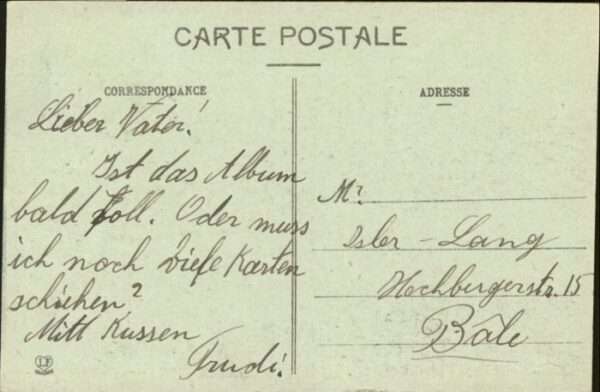 CARTE POSTALE
CORRESPONDANCE
Lieber Vater!
Ist das Album
bald voll. Oder muss
ich noch viele Karten
schicken?
Mitt Kussen
Trudi.
ADRESSE
Mr
Isler - Lang
Hochbergerstr. 15
Bâle